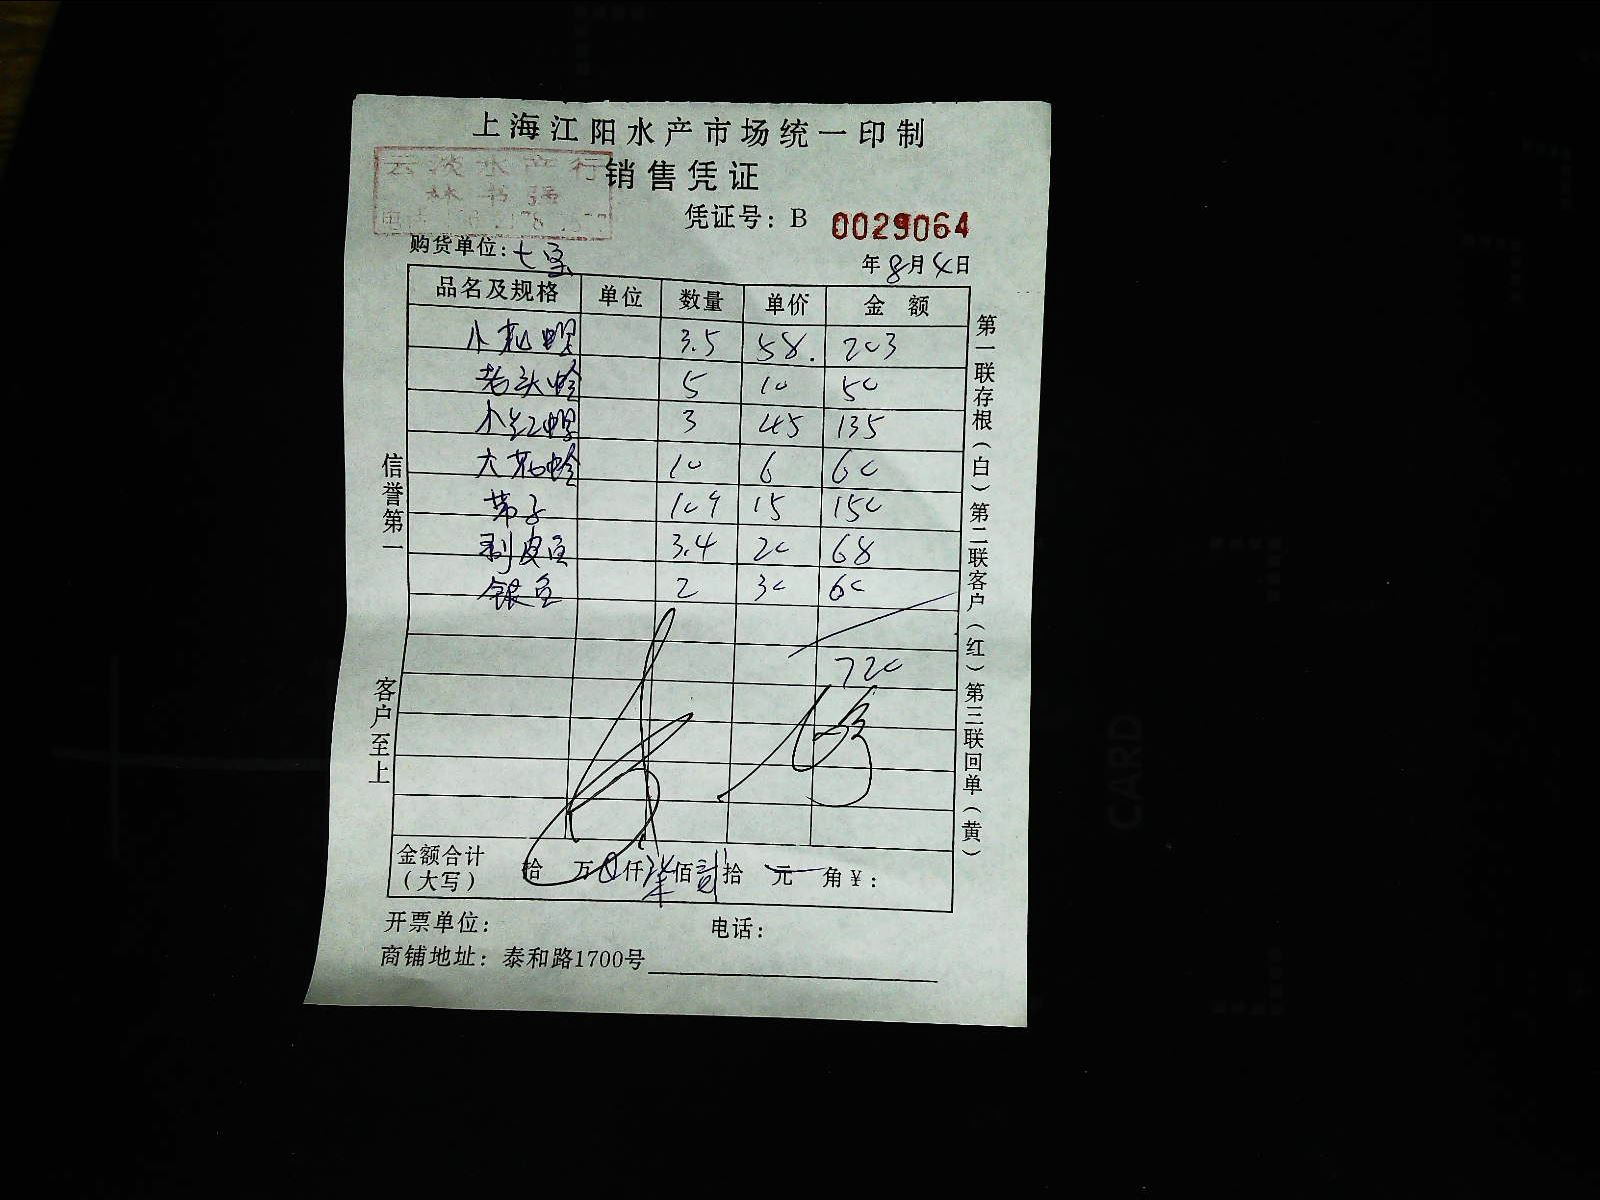 上海江阳水产市场统一印制
云淡水产行
销售凭证
林书强
凭证号：B 0029064
购货单位：七宝
年8月4日
品名及规格 单位 数量 单价 金额
小花螺 3.5 58. 203
老头蛤 5 10 50
小红螺 3 45 135
大花蛤 10 6 60
带子 10个 15 150
剥皮鱼 3.4 20 68
银鱼 2 30 60
720
金额合计（大写） 拾 万 0 仟 柒 佰 贰 拾 元 角 ¥：
开票单位： 电话：
商铺地址：泰和路1700号
信誉第一 客户至上
第一联存根（白）第二联客户（红）第三联回单（黄）
CARD